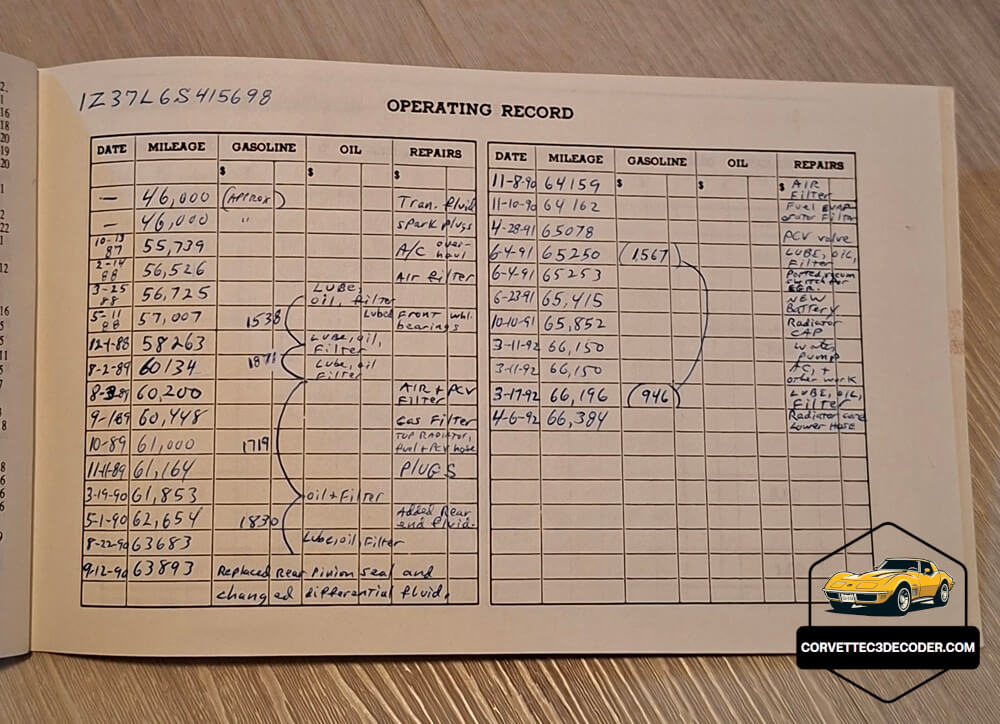 1Z37L6S415698
OPERATING RECORD
DATE MILEAGE GASOLINE OIL REPAIRS
$ $ $
— 46,000 (APPROX) Tran. fluid
— 46,000 " spark plugs
10-13 87 55,739 A/C over-haul
2-14 88 56,526 Air filter
3-25 88 56,725 LUBE, oil, filter
5-11 88 57,007 1538 Lubed FRONT whl. bearings
12-1-88 58263 LUBE, oil, Filter
8-2-89 60134 1871 Lube, oil Filter
8-3-89 60,200 AIR + PCV Filter
9-1-89 60,448 Gas Filter
10-89 61,000 1719 TOP RADIATOR, fuel + PCV hose
11-11-89 61,164 PLUGS
3-19-90 61,853 oil + Filter
5-1-90 62,654 1830 Added Rear end fluid.
8-22-90 63683 Lube, oil, Filter
9-12-90 63893 Replaced Rear Pinion seal and
changed differential fluid.
DATE MILEAGE GASOLINE OIL REPAIRS
11-8-90 64159 $ $ $ AIR Filter
11-10-90 64162 Fuel Evap Filter
4-28-91 65078 PCV valve
6-4-91 65250 (1567) LUBE, OIL, Filter
6-4-91 65253 Ported switch for EGR.
6-23-91 65,415 NEW Battery
10-10-91 65,852 Radiator CAP
3-11-92 66,150 Water pump
3-11-92 66,150 AC, + other work
3-17-92 66,196 (946) LUBE, OIL, Filter
4-6-92 66,384 Radiator Lower Hose
CORVETTEC3DECODER.COM
2.
1
16
18
20
19
20
1
2
22
1
12
16
5
5
11
5
7
3
8
8
6
6
6
9